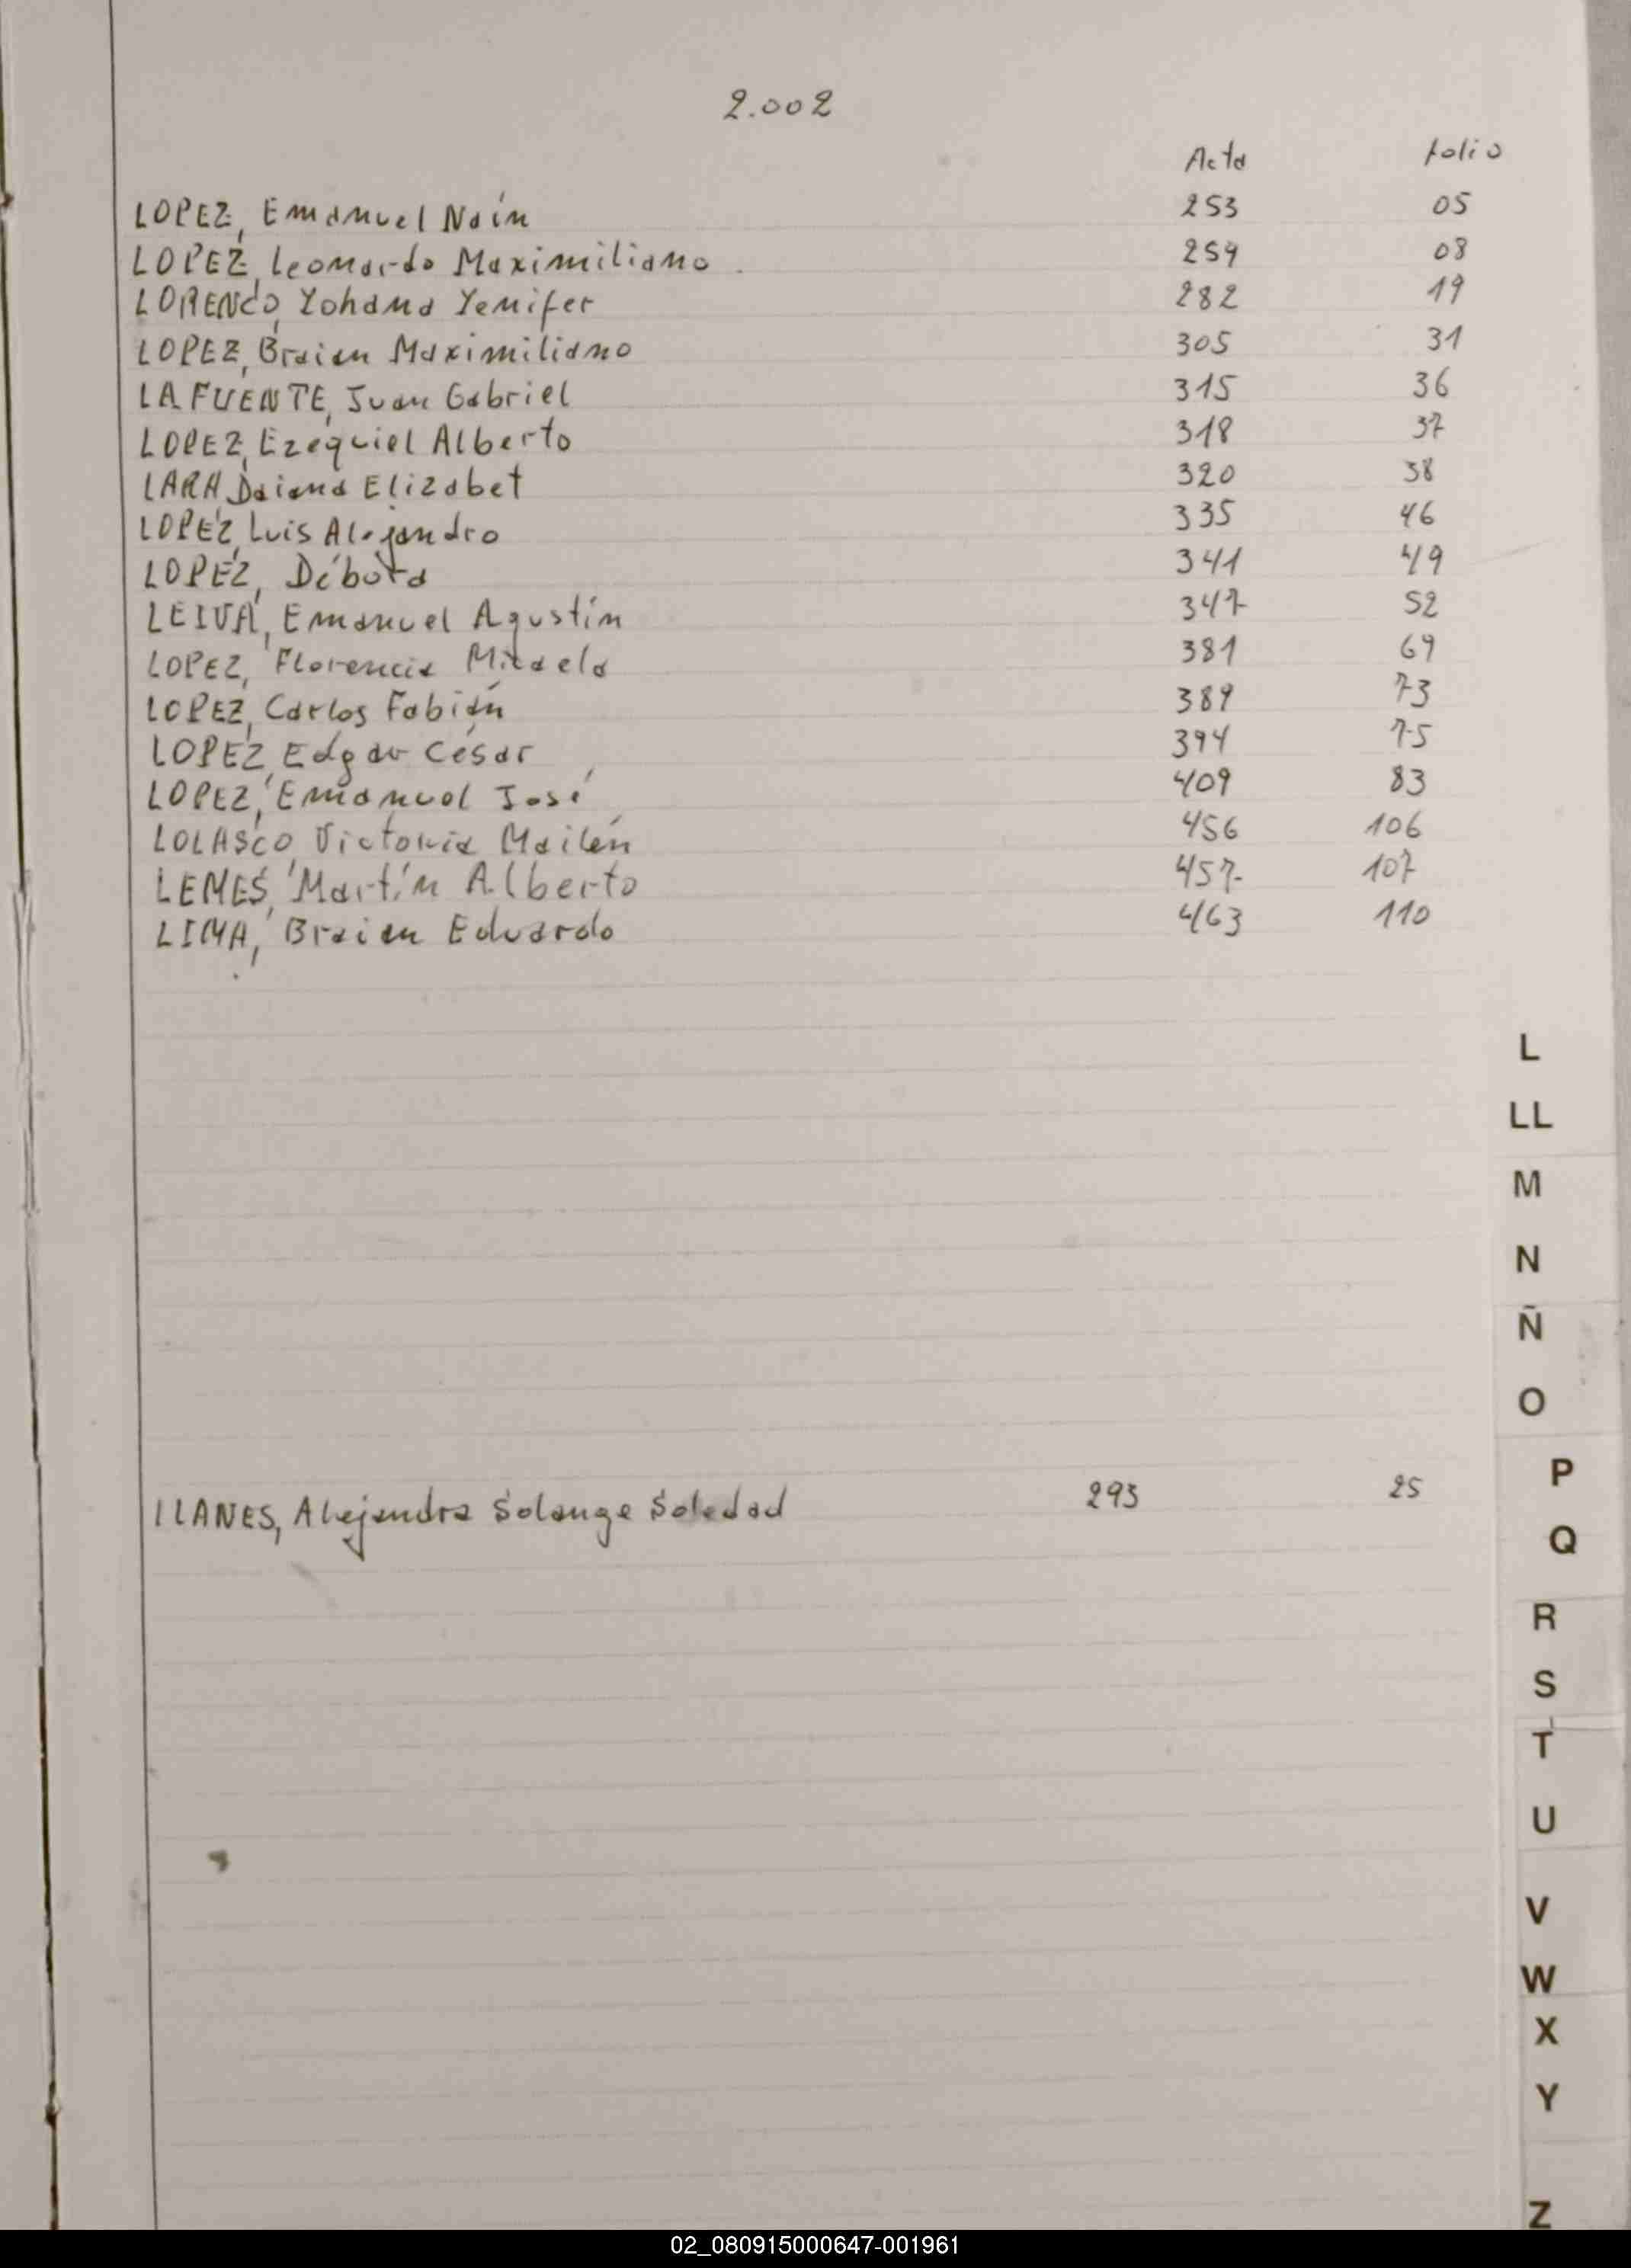 2.002
Acta folio
LOPEZ, Emanuel Naín 253 05
LOPEZ, Leonardo Maximiliano 259 08
LORENCO, Yohana Yenifer 282 19
LOPEZ, Braian Maximiliano 305 31
LA FUENTE, Juan Gabriel 315 36
LOPEZ, Ezequiel Alberto 318 37
LARA, Daiana Elizabet 320 38
LOPEZ, Luis Alejandro 335 46
LOPEZ, Débora 341 49
LEIVA, Emanuel Agustín 347 52
LOPEZ, Florencia Micaela 381 69
LOPEZ, Carlos Fabián 389 73
LOPEZ, Edgar César 394 75
LOPEZ, Emanuel José 409 83
LOLASCO, Victoria Mailén 456 106
LEMES, Martín Alberto 457 107
LIMA, Braian Eduardo 463 110
L
LL
M
N
Ñ
O
P
LLANES, Alejandra Solange Soledad 293 25
Q
R
S
T
U
V
W
X
Y
Z
02_080915000647-001961